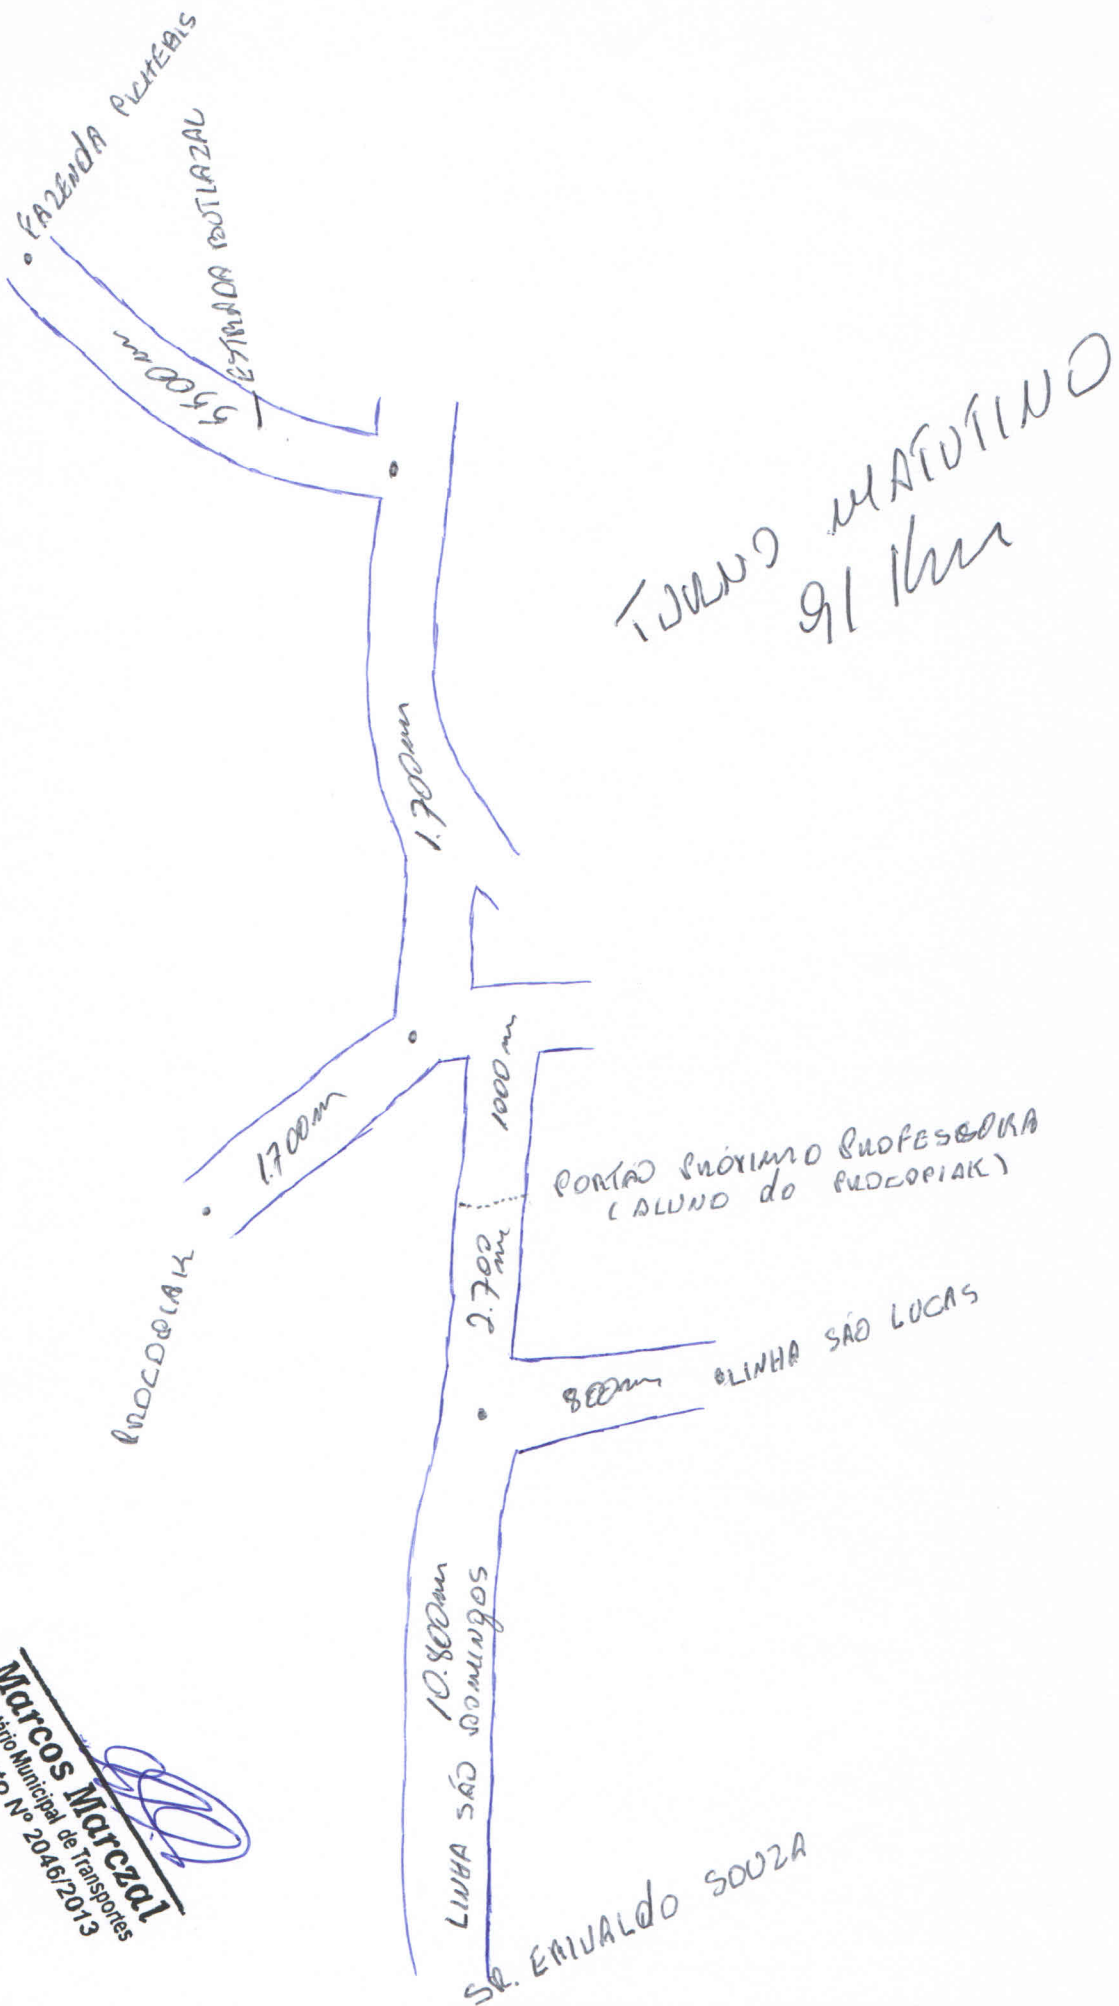 FAZENDA
ESTRADA
5.500m
TURNO MATUTINO
91 Km
1.700m
1000m
1.700m
PORTÃO PRÓXIMO PROFESSORA
(ALUNO do PROCOPIAK)
2.700
m
PROCOPIAK
800m
LINHA SÃO LUCAS
10.800m
LINHA SÃO DOMINGOS
SR. ERIVALdO SOUZA
Marcos Marczal
Municipal de Transportes
Nº 2046/2013